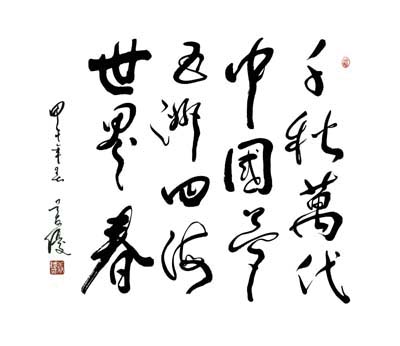 千秋萬代
中國夢
五洲四海
世界春
甲午年